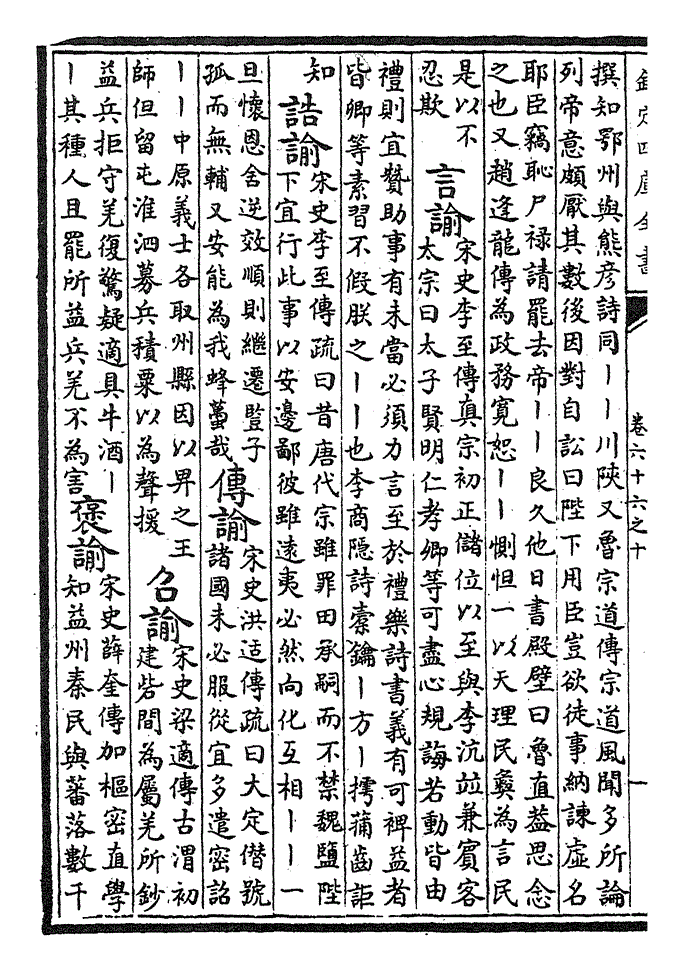 欽定四庫全書
卷六十六之十
一
撰知鄂州與熊彦詩同丨丨川陜又魯宗道傳宗道風聞多所論
列帝意頗厭其數後因對自訟曰陛下用臣豈欲徒事納諫虚名
耶臣竊恥尸禄請罷去帝丨丨良久他日書殿壁曰魯直葢思念
之也又趙逢龍傳為政務寛恕丨丨惻怛一以天理民彜為言民
是以不
忍欺
言諭
宋史李至傳真宗初正儲位以至與李沆竝兼賓客
太宗曰太子賢明仁孝卿等可盡心規誨若動皆由
禮則宜贊助事有未當必須力言至於禮樂詩書義有可裨益者
皆卿等素習不假朕之丨丨也李商隱詩橐鑰丨方丨摴蒱齒詎
知
誥諭
宋史李至傳疏曰昔唐代宗雖罪田承嗣而不禁魏鹽陛
下宜行此事以安邊鄙彼雖逺夷必然向化互相丨丨一
旦懷恩舍逆效順則繼遷豎子
孤而無輔又安能為我蜂蠆哉
傳諭
宋史洪适傳疏曰大定僭號
諸國未必服從宜多遣密詔
丨丨中原義士各取州縣因以畀之王
師但留屯淮泗募兵積粟以為聲援
召諭
宋史梁適傳古渭初
建砦間為屬羌所鈔
益兵拒守羌復驚疑適具牛酒丨
丨其種人且罷所益兵羌不為害
褒諭
宋史薛奎傳加樞密直學
知益州秦民與蕃落數千